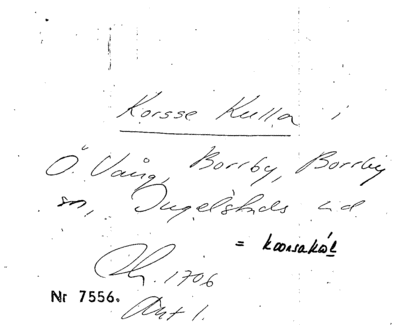 Korsse Kulla i
Ö. Vång, Borrby, Borrby
sn, Ingelstads hd
= koorsakúl
Lh. 1706
Nr 7556.
Akt 1.